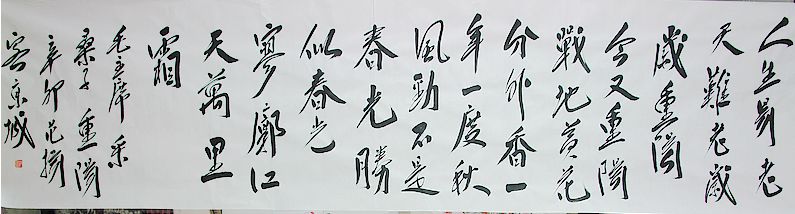 人生易老
天難老歲
歲重陽
今又重陽
戰地黃花
分外香一
年一度秋
風勁不是
春光勝
似春光
寥廓江
天萬里
霜
毛主席 采
桑子 重陽
辛卯
客京城